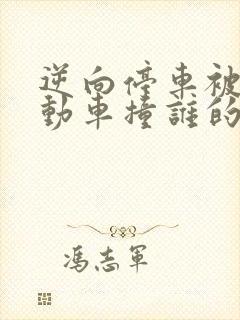 逆向停車被
動車撞誰的
馮志軍